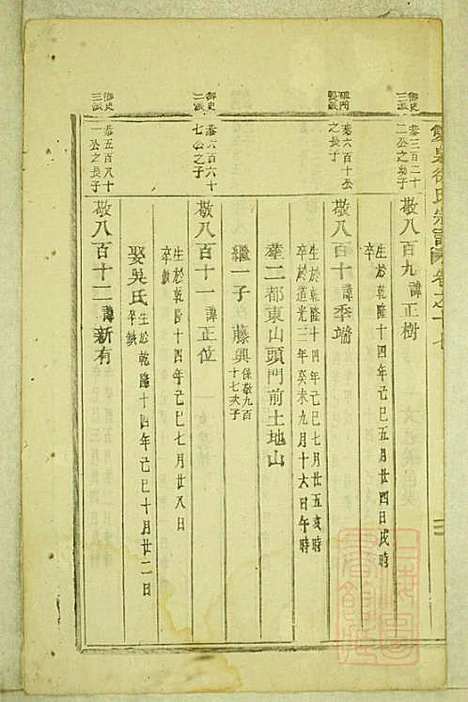 雙泉徐氏宗譜 卷之十七
御史三派
恭三百二十二公之幼子
敬八百九 諱正樹
生於乾隆十四年己巳五月廿四日戌時
卒
恭六百十公之長子
敬八百十 諱季端
生於乾隆十四年己巳七月廿五亥時
卒於道光三年癸未九月十六日午時
葬二都東山頭門前土地山
繼一子 藤興 係敬九百十七次子
御史二派
恭六百六十七公之子
敬八百十一 諱正位
生於乾隆十四年己巳七月廿八日
卒缺
娶吳氏 生於乾隆十四年己巳十月廿二日
卒缺
御史三派
恭五百八十一公之長子
敬八百十二 諱新有